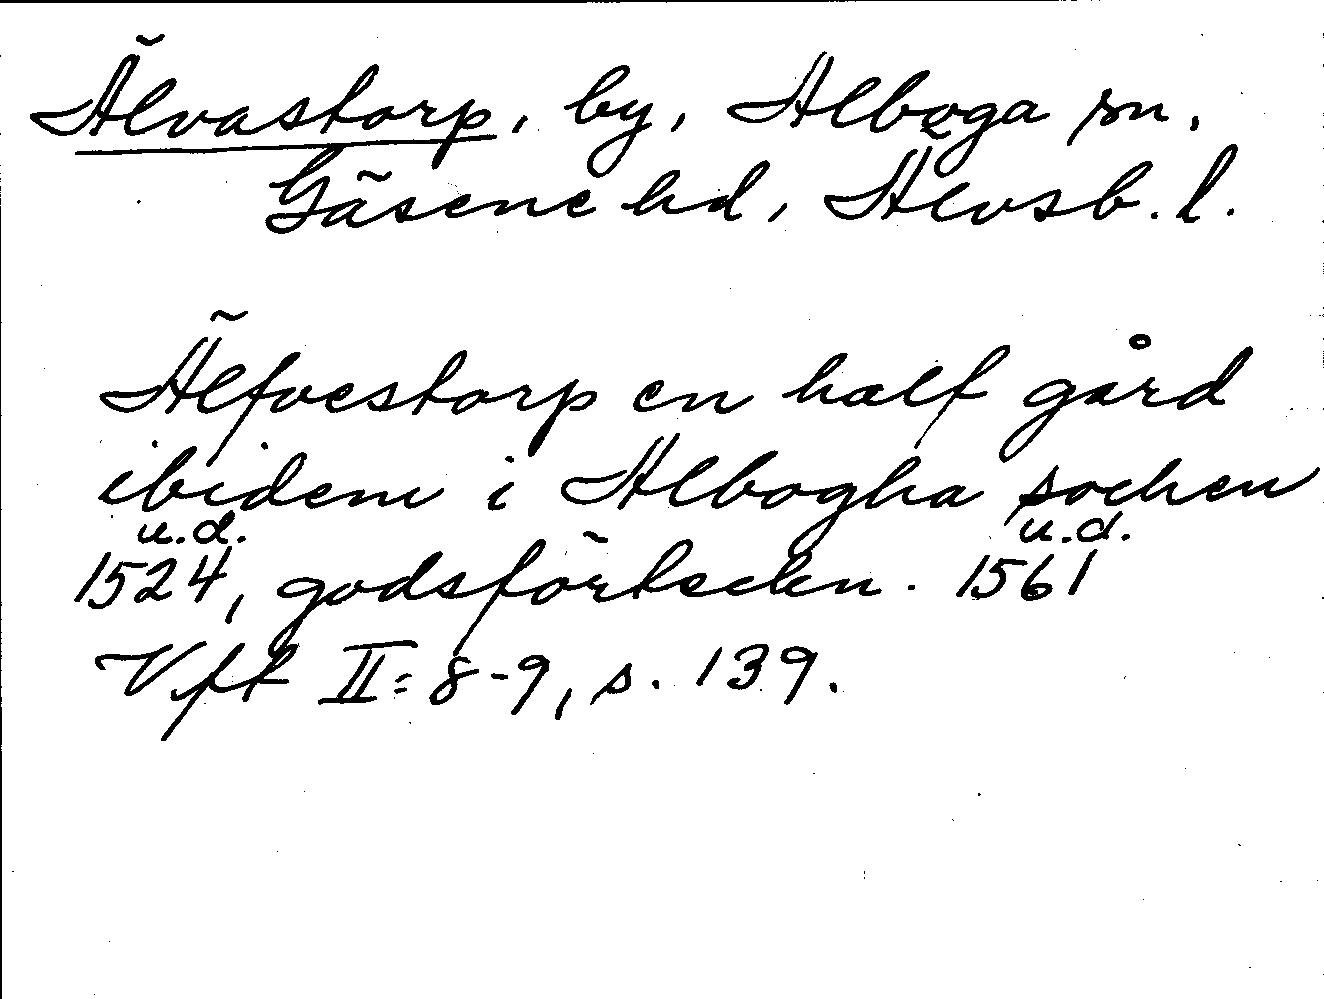 Älvastorp, by, Alboga sn.
Gäsene hd, Älvsb. l.
Älfvestorp en half gård
ibidem i Albogha sochen
u.d. u.d.
1524, godsförteckn. 1561
Vfk II:8-9, s. 139.